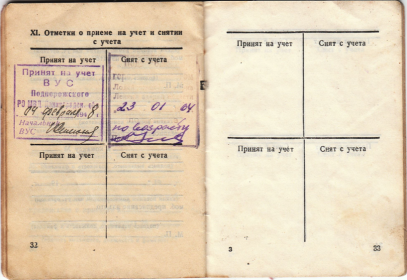 XI. Отметки о приеме на учет и снятии
с учета
Принят на учет
Снят с учета
Принят на учет
ВУС
Печерского
04 февраля 8
Начальник
ВУС
23 01 04
по возрасту
Принят на учет
Снят с учета
32
Принят на учет
Снят с учета
Принят на учет
Снят с учета
3
33